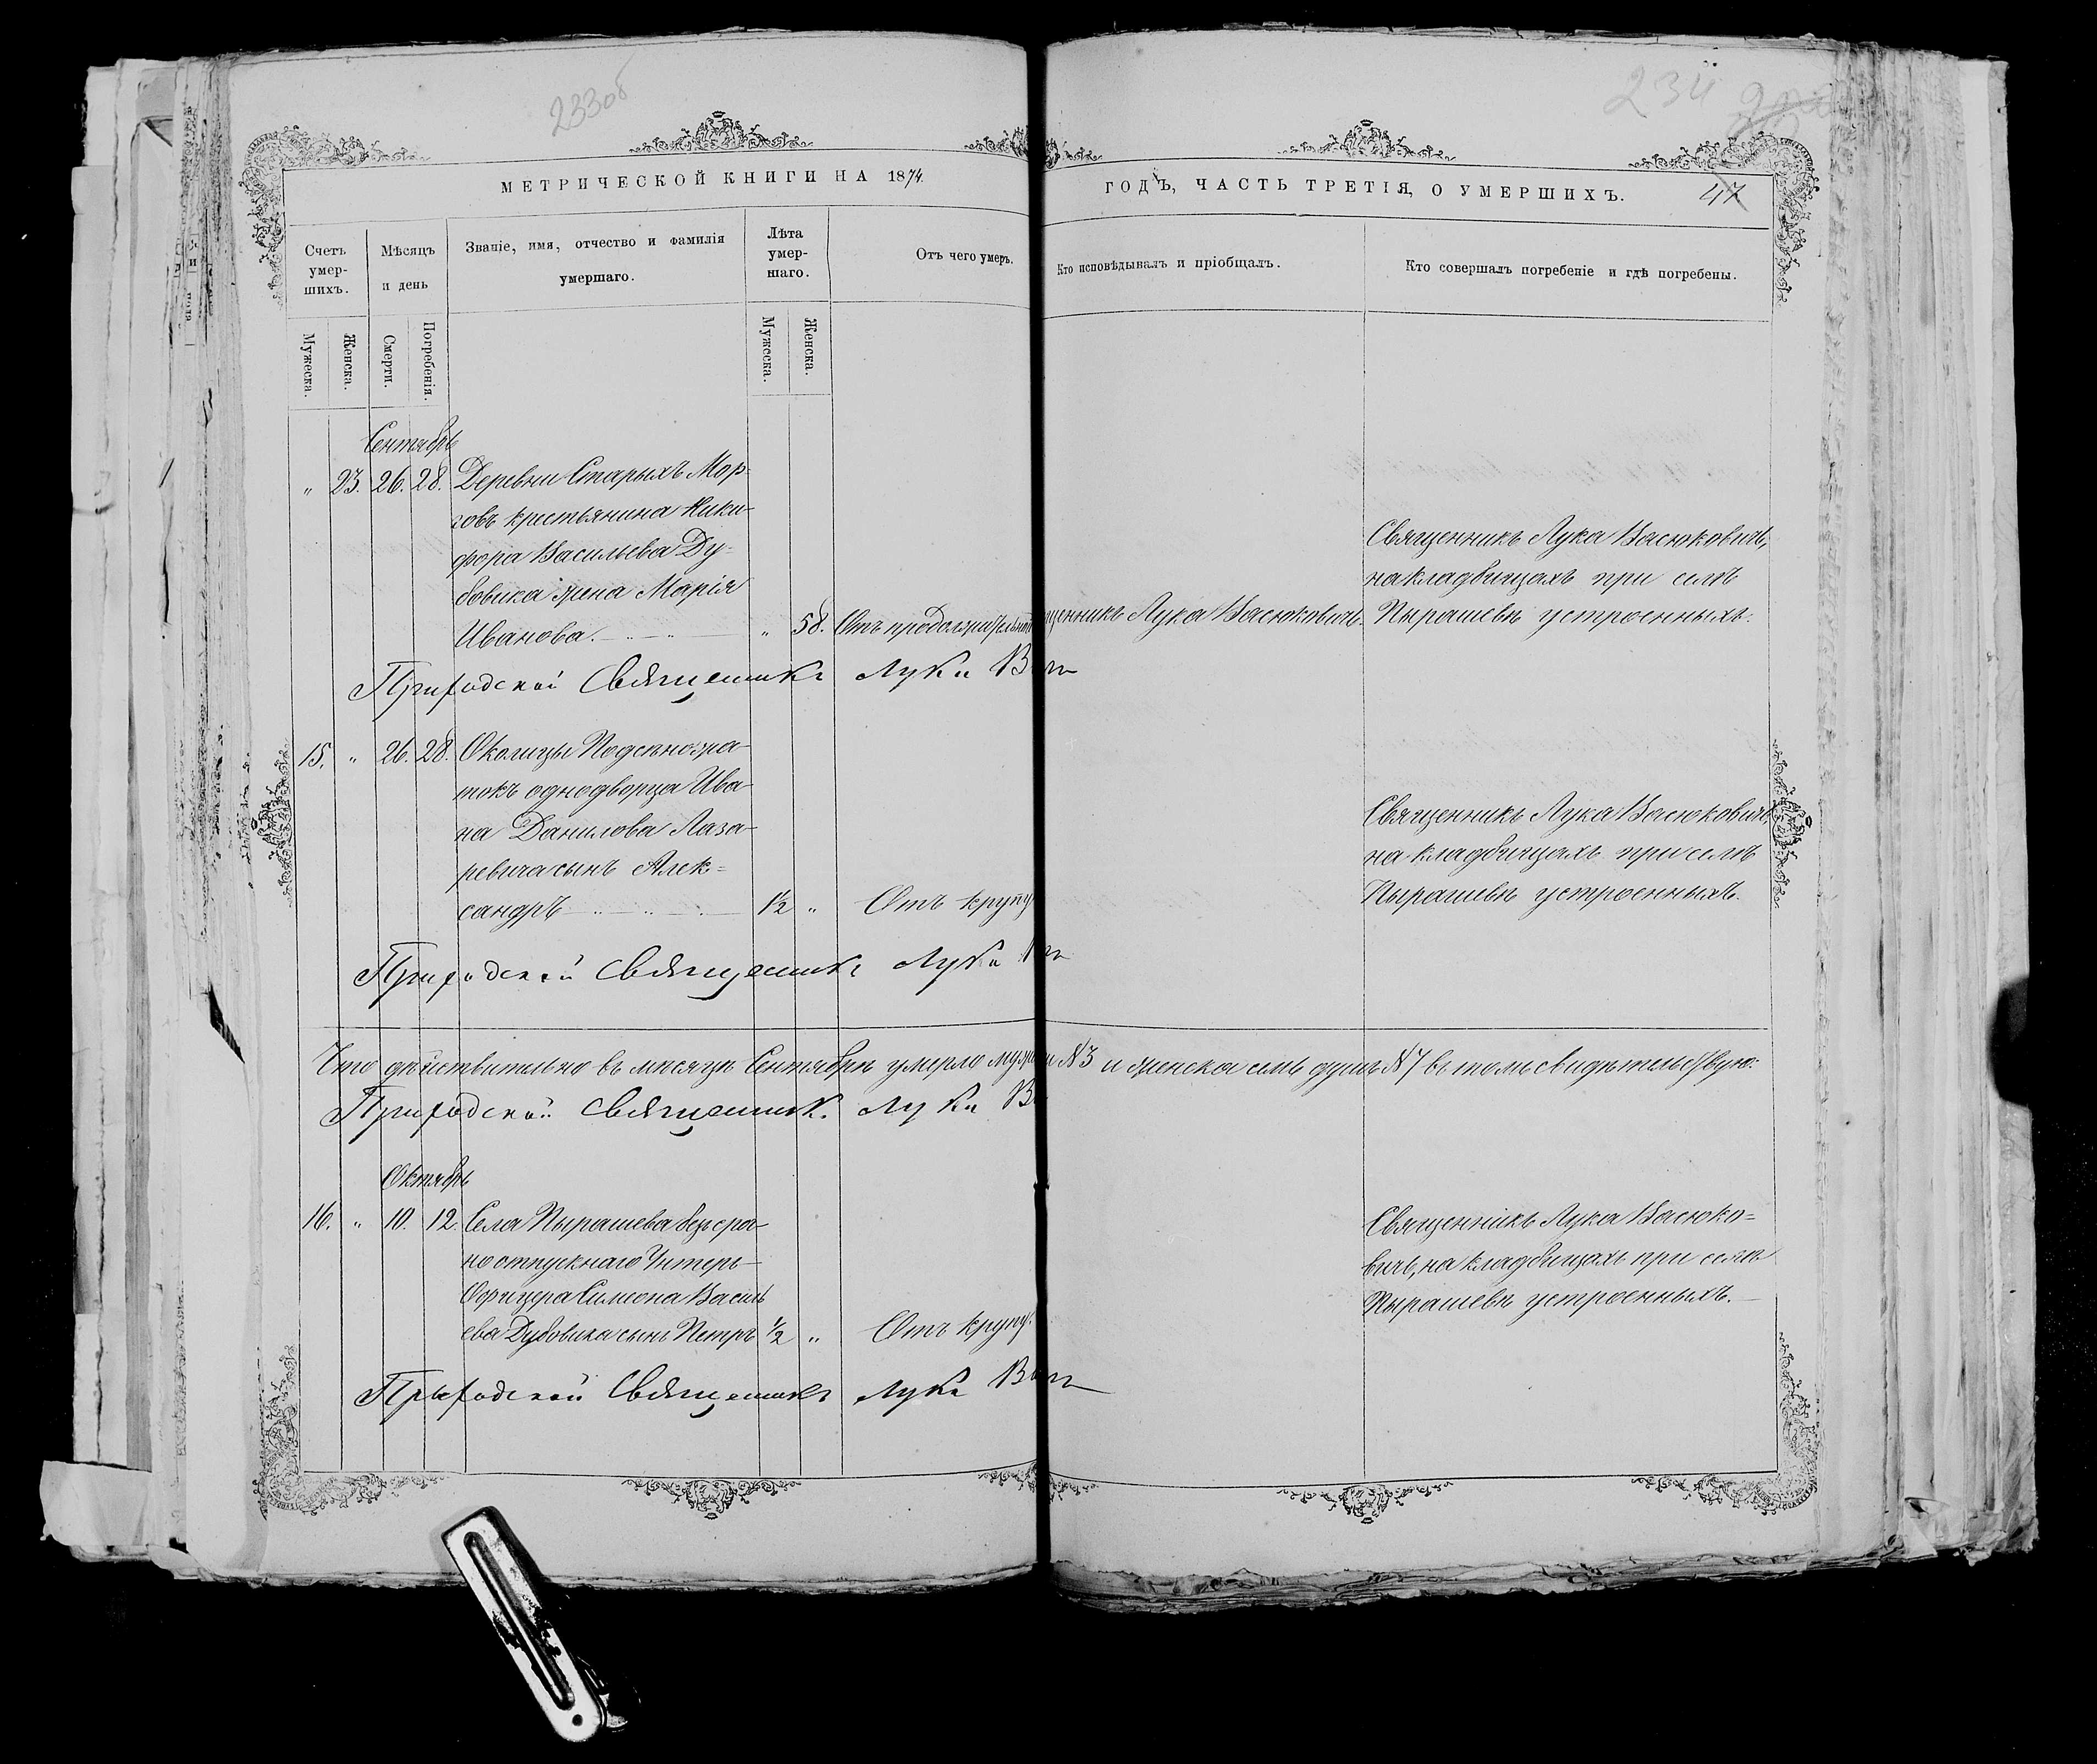 233об
234
МЕТРИЧЕСКОЙ КНИГИ НА 1874.
ГОДЪ, ЧАСТЬ ТРЕТІЯ, О УМЕРШИХЪ.
47
Счетъ умер-шихъ.
Мѣсяцъ и день
Званіе, имя, отчество и фамилія умершаго.
Лѣта умер-шаго.
Отъ чего умеръ.
Кто исповѣдывалъ и пріобщалъ.
Кто совершалъ погребеніе и гдѣ погребены.
Мужеска.
Женска.
Смерти.
Погребенія.
Мужеска.
Женска.
Сентябрь
" 23. 26. 28. Деревни Старыхъ Мор-
говъ крестьянина Ники-
фора Васильева Ду-
бовика жена Марія
Иванова. " 58. Отъ продолжительной
щенникъ Лука Васюковичъ.
Священникъ Лука Васюковичъ,
на кладбищахъ при селѣ
Пырашевѣ устроенныхъ.
Приходской Священникъ Лука Ва
15. " 26. 28. Околицы Подсѣножа-
токъ однодворца Ива-
на Данилова Лаза-
ревича сынъ Алек-
сандръ 1½ " Отъ крупу
Священникъ Лука Васюковичъ,
на кладбищахъ при селѣ
Пырашевѣ устроенныхъ.
Приходской Священникъ Лука
Что дѣйствительно въ мѣсяцѣ Сентябрѣ умерло мужеска №3 и женска семь душъ №7 въ томъ свидѣтельствую:
Приходской Священникъ Лука В
Октябрь
16. " 10. 12. Села Пырашева безсро-
чноотпускнаго Унтеръ-
Офицера Симеона Василь
ева Дубовика сынъ Петръ ½ " Отъ крупу.
Священникъ Лука Васюко-
вичъ, на кладбищахъ при селѣ
Пырашевѣ устроенныхъ.
Приходской Священникъ Лука Ва